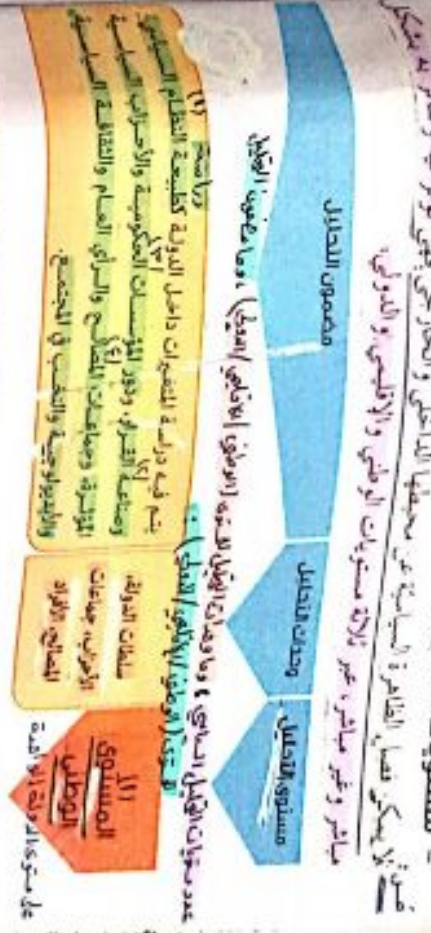 لا يمكن فصل الظاهرة السياسية عن محيطها الداخلي والخارجي
مباشر وغير مباشر، عبر ثلاثة مستويات الوطني والإقليمي والدولي.
مستوى التحليل
وحدات التحليل
مضمون التحليل
عدد مستويات التحليل السياسي؟ وما وحدات التحليل لمستوى (الوطني/الإقليمي/الدولي)؟ وما مضمون التحليل
لمستوى (الوطني/الإقليمي/الدولي)؟
(1)
المستوى
الوطني
على مستوى الدولة الواحدة
سلطات الدولة،
الأحزاب، جماعات
المصالح، الأفراد
دراسة (1)
يتم فيه دراسة المتغيرات داخل الدولة كطبيعة النظام السياسي،
(2) (3)
وصناعة القرار، ودور المؤسسات الحكومية والأحزاب السياسية
(4)
المؤثرة، وجماعات المصالح والرأي العام والثقافة السياسية
والأيديولوجية والنخب في المجتمع.